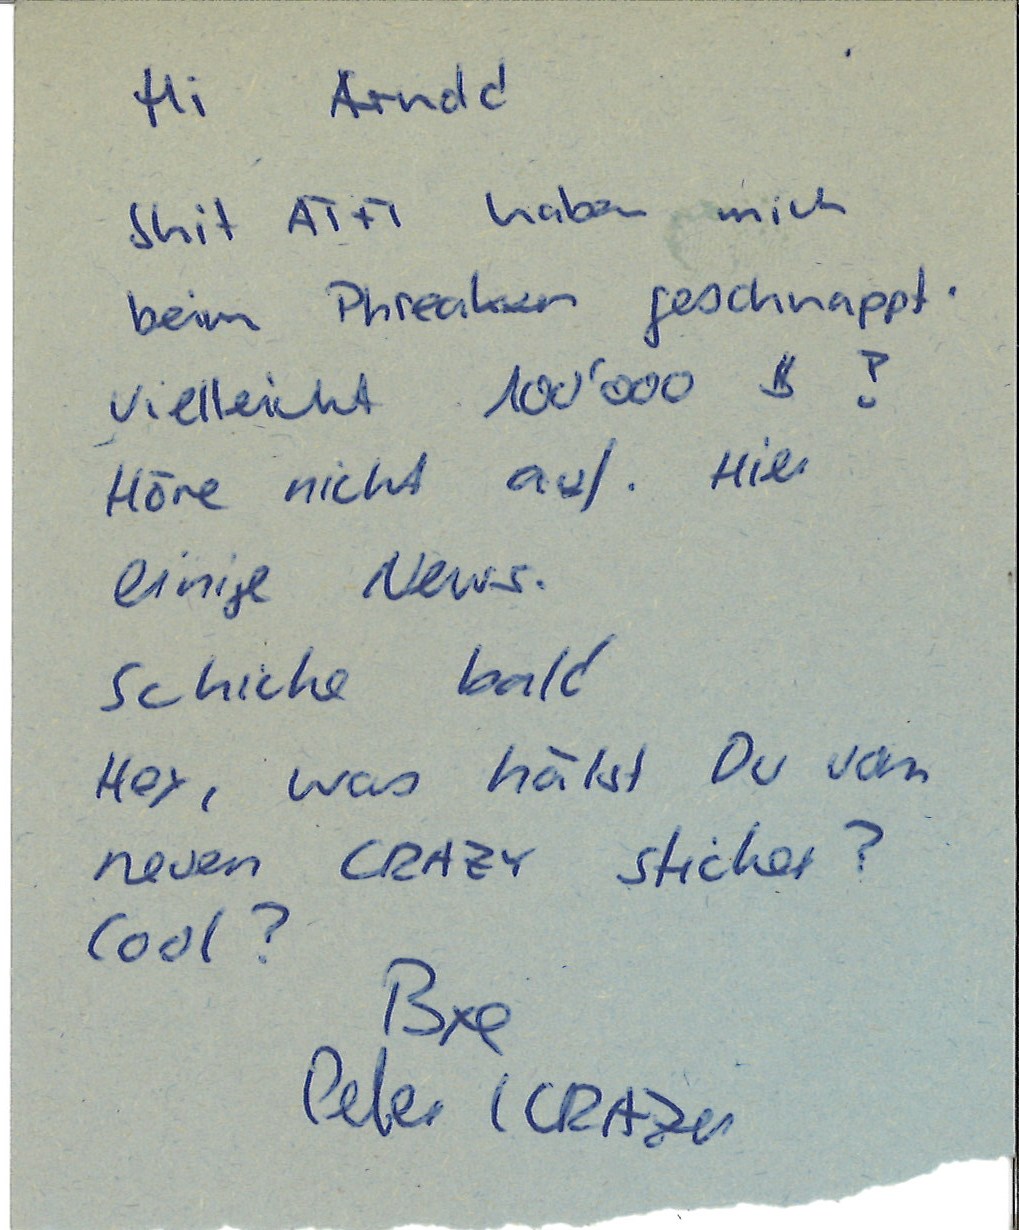 Hi Arndd
Shit AT+T haben mich
beim Phreaken geschnappt.
Vielleicht 100'000 $ ?
Höre nicht auf. Hier
einige News.
Schicke bald
Hey, was hälst Du vom
neuen CRAZY sticker?
Cool?
Bye
Peter (CRAZY